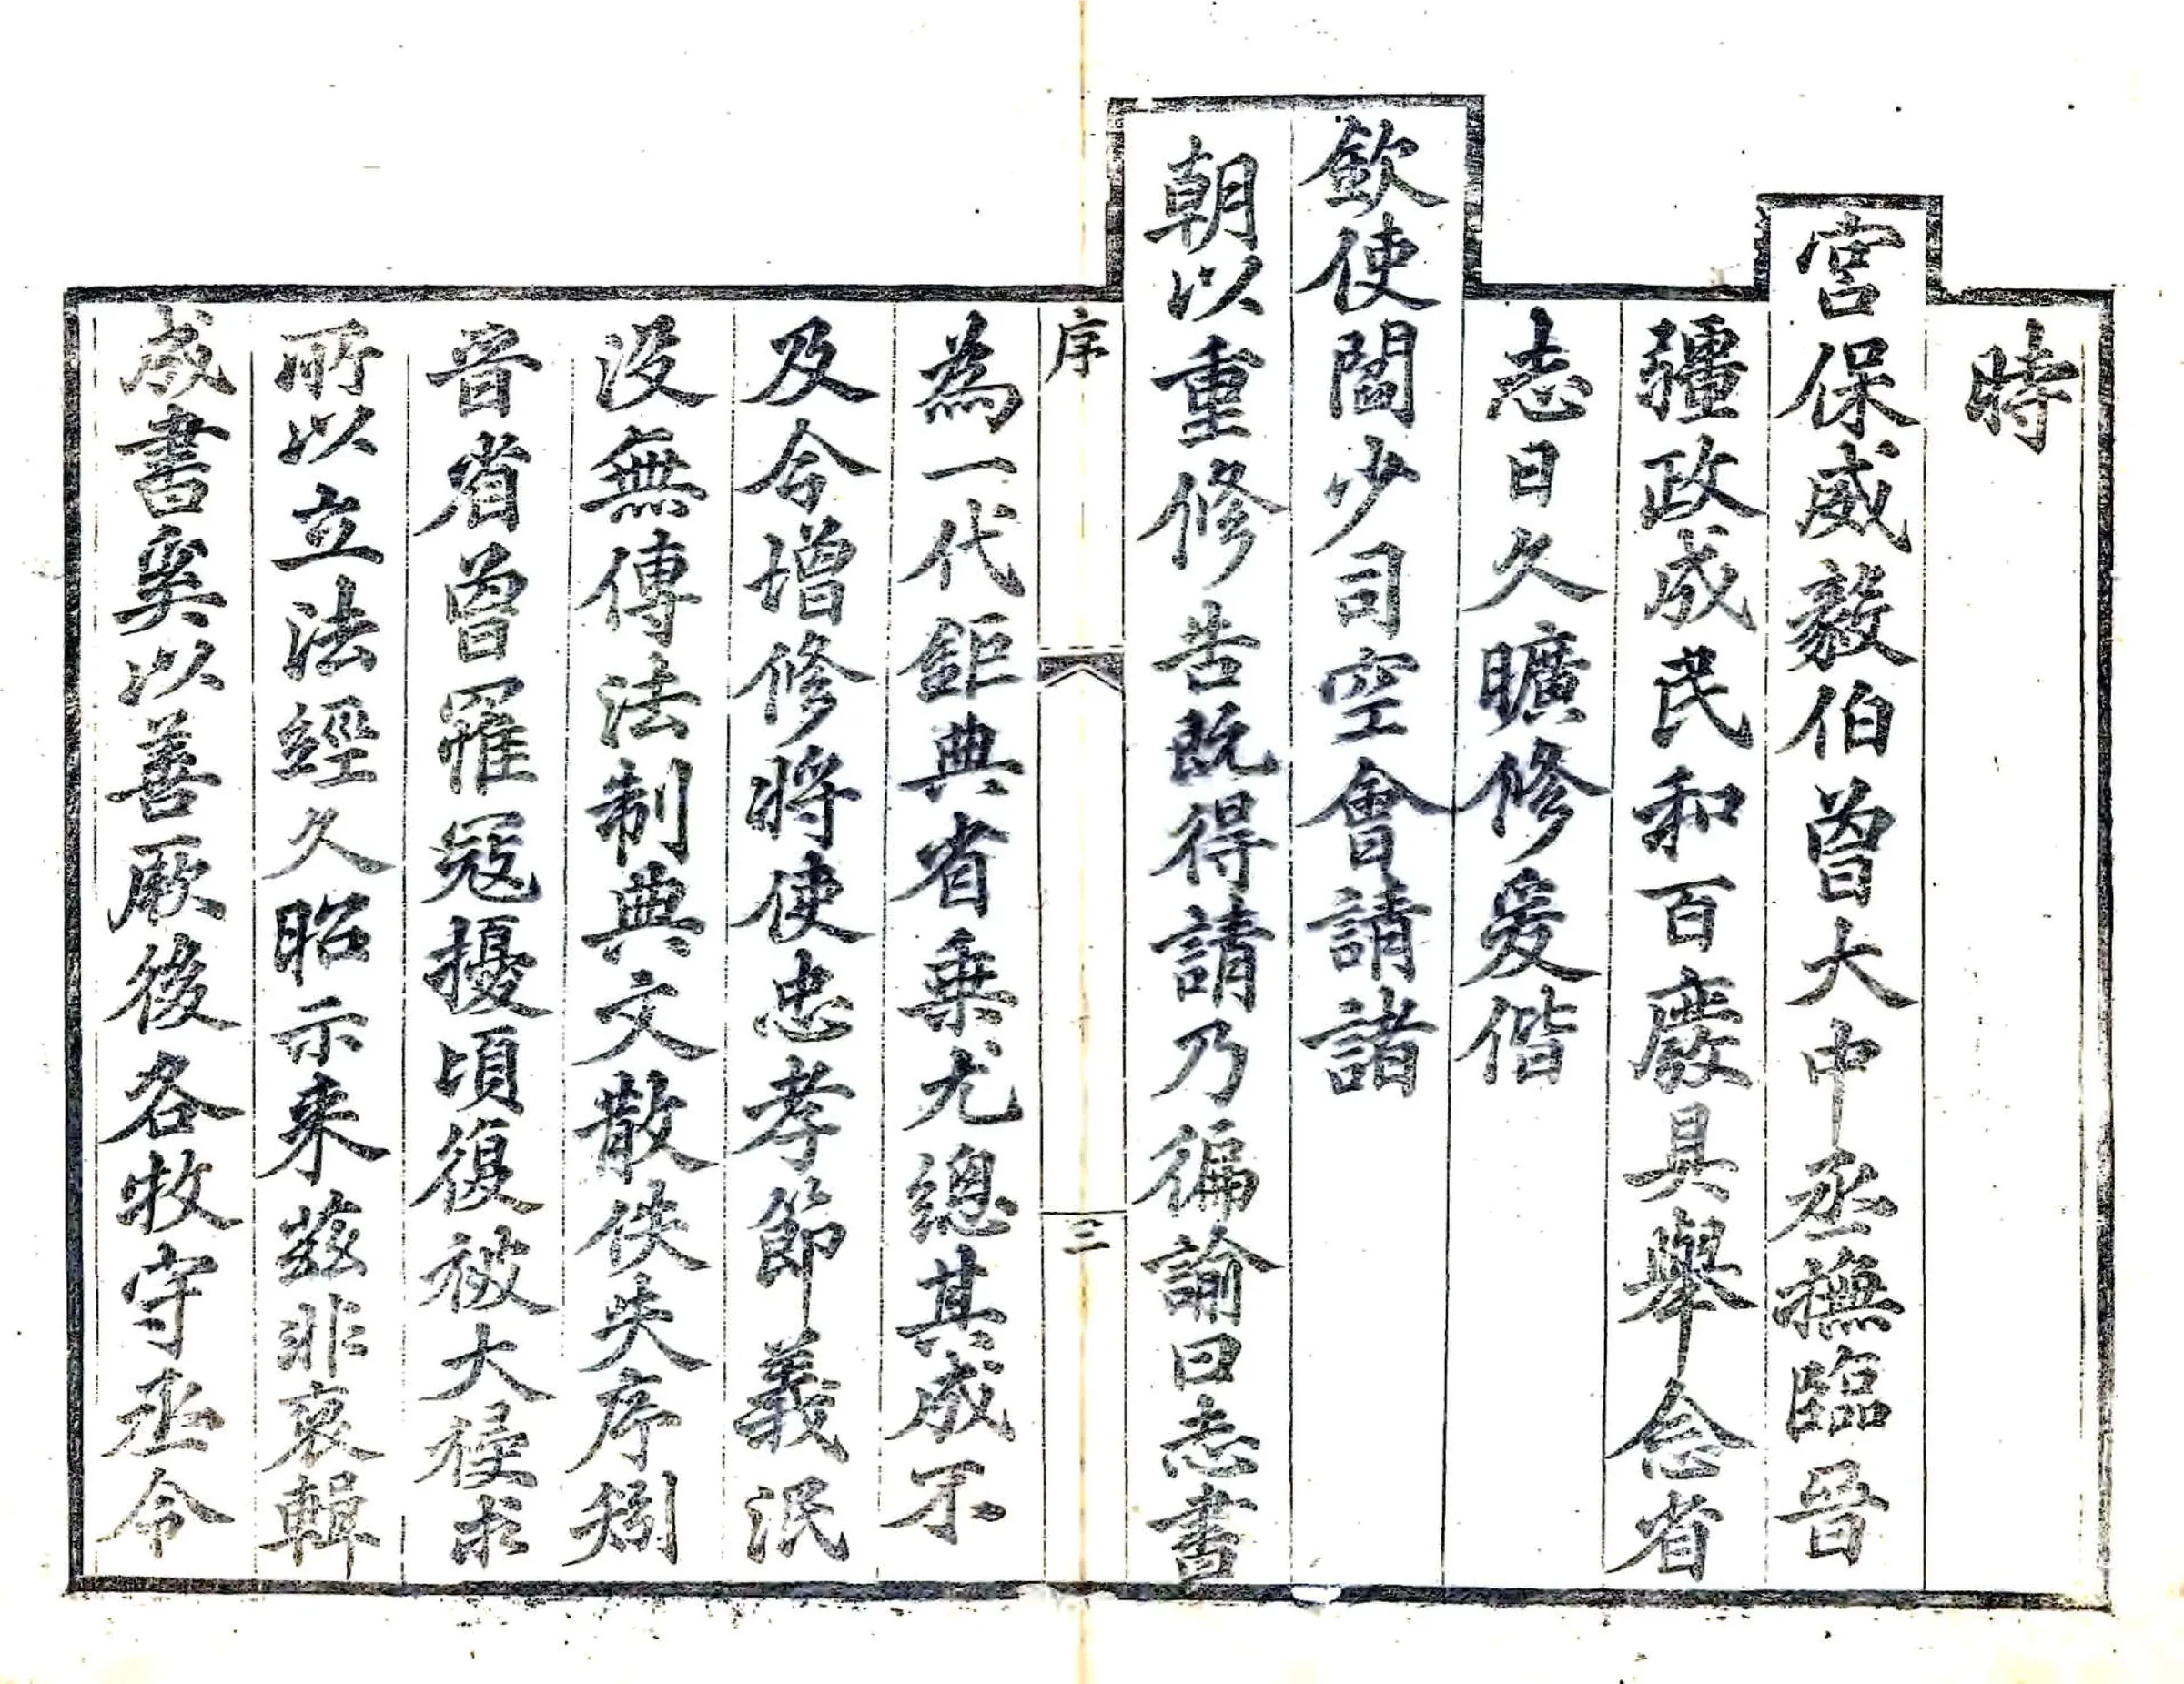 時
宮保威毅伯曾大中丞撫臨晉
疆政成民和百廢具舉念省
志日久曠修爰偕
欽使閻少司空會請諸
朝以重修告既得請乃徧諭曰志書
序
三
為一代鉅典省乘尤總其成不
及今增修將使忠孝節義泯
沒無傳法制典文散佚失序矧
晉省曾罹寇擾頃復被大祲求
所以立法經久昭示来茲非裒輯
成書奚以善厥後各牧守丞令